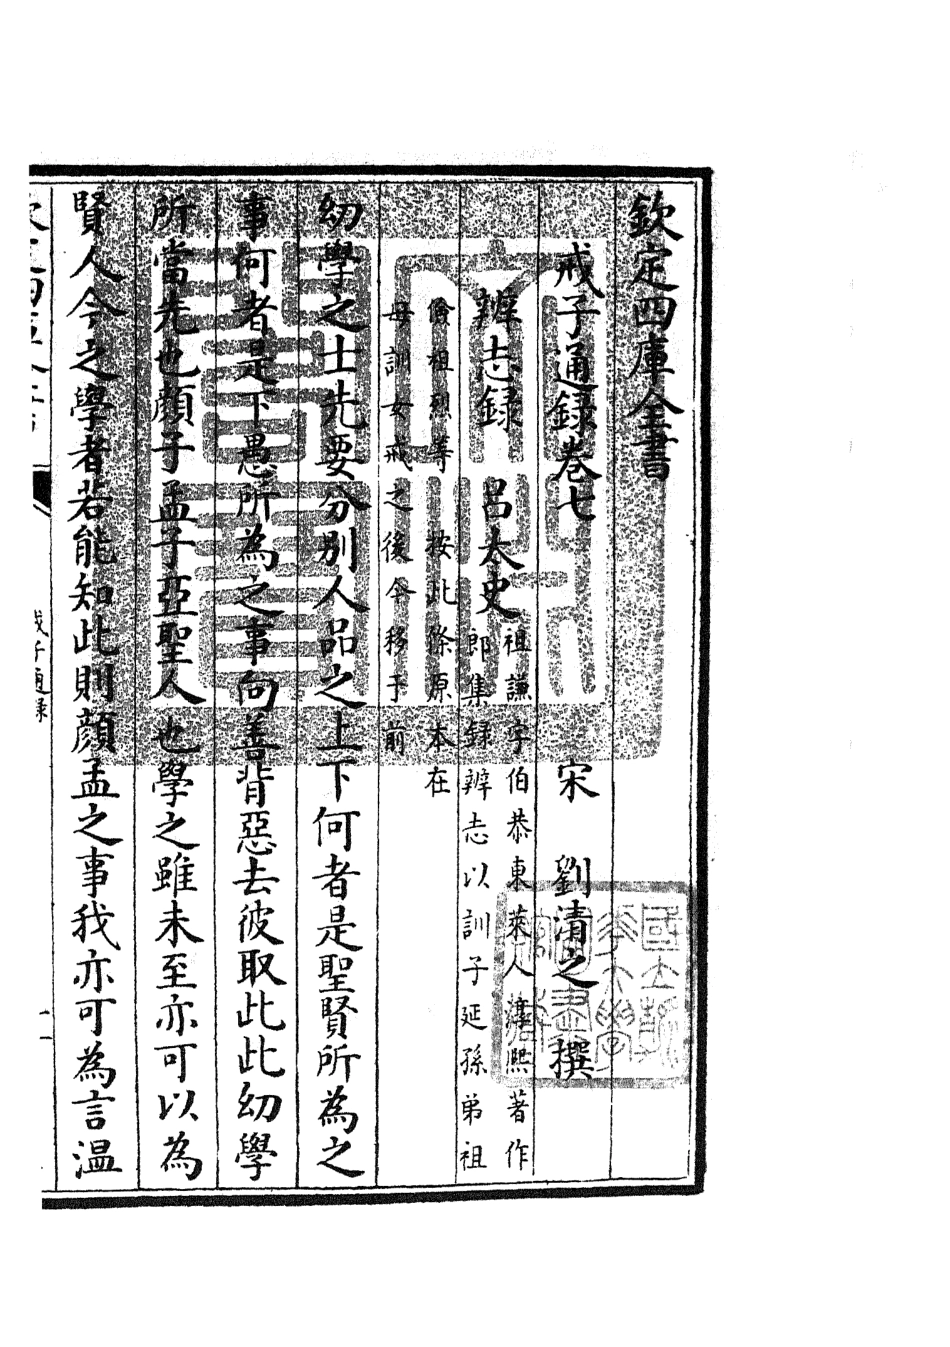 欽定四庫全書
戒子通録卷七
宋 劉清之 撰
辨志録 吕太史
祖謙字伯恭東萊人淳熙著作
郎集録辨志以訓子延孫弟祖
儉祖烈等 按此條原本在
母訓女戒之後今移于前
幼學之士先要分别人品之上下何者是聖賢所為之
事何者是下愚所為之事向善背惡去彼取此此幼學
所當先也顔子孟子亞聖人也學之雖未至亦可以為
賢人今之學者若能知此則顔孟之事我亦可為言温
戒子通録